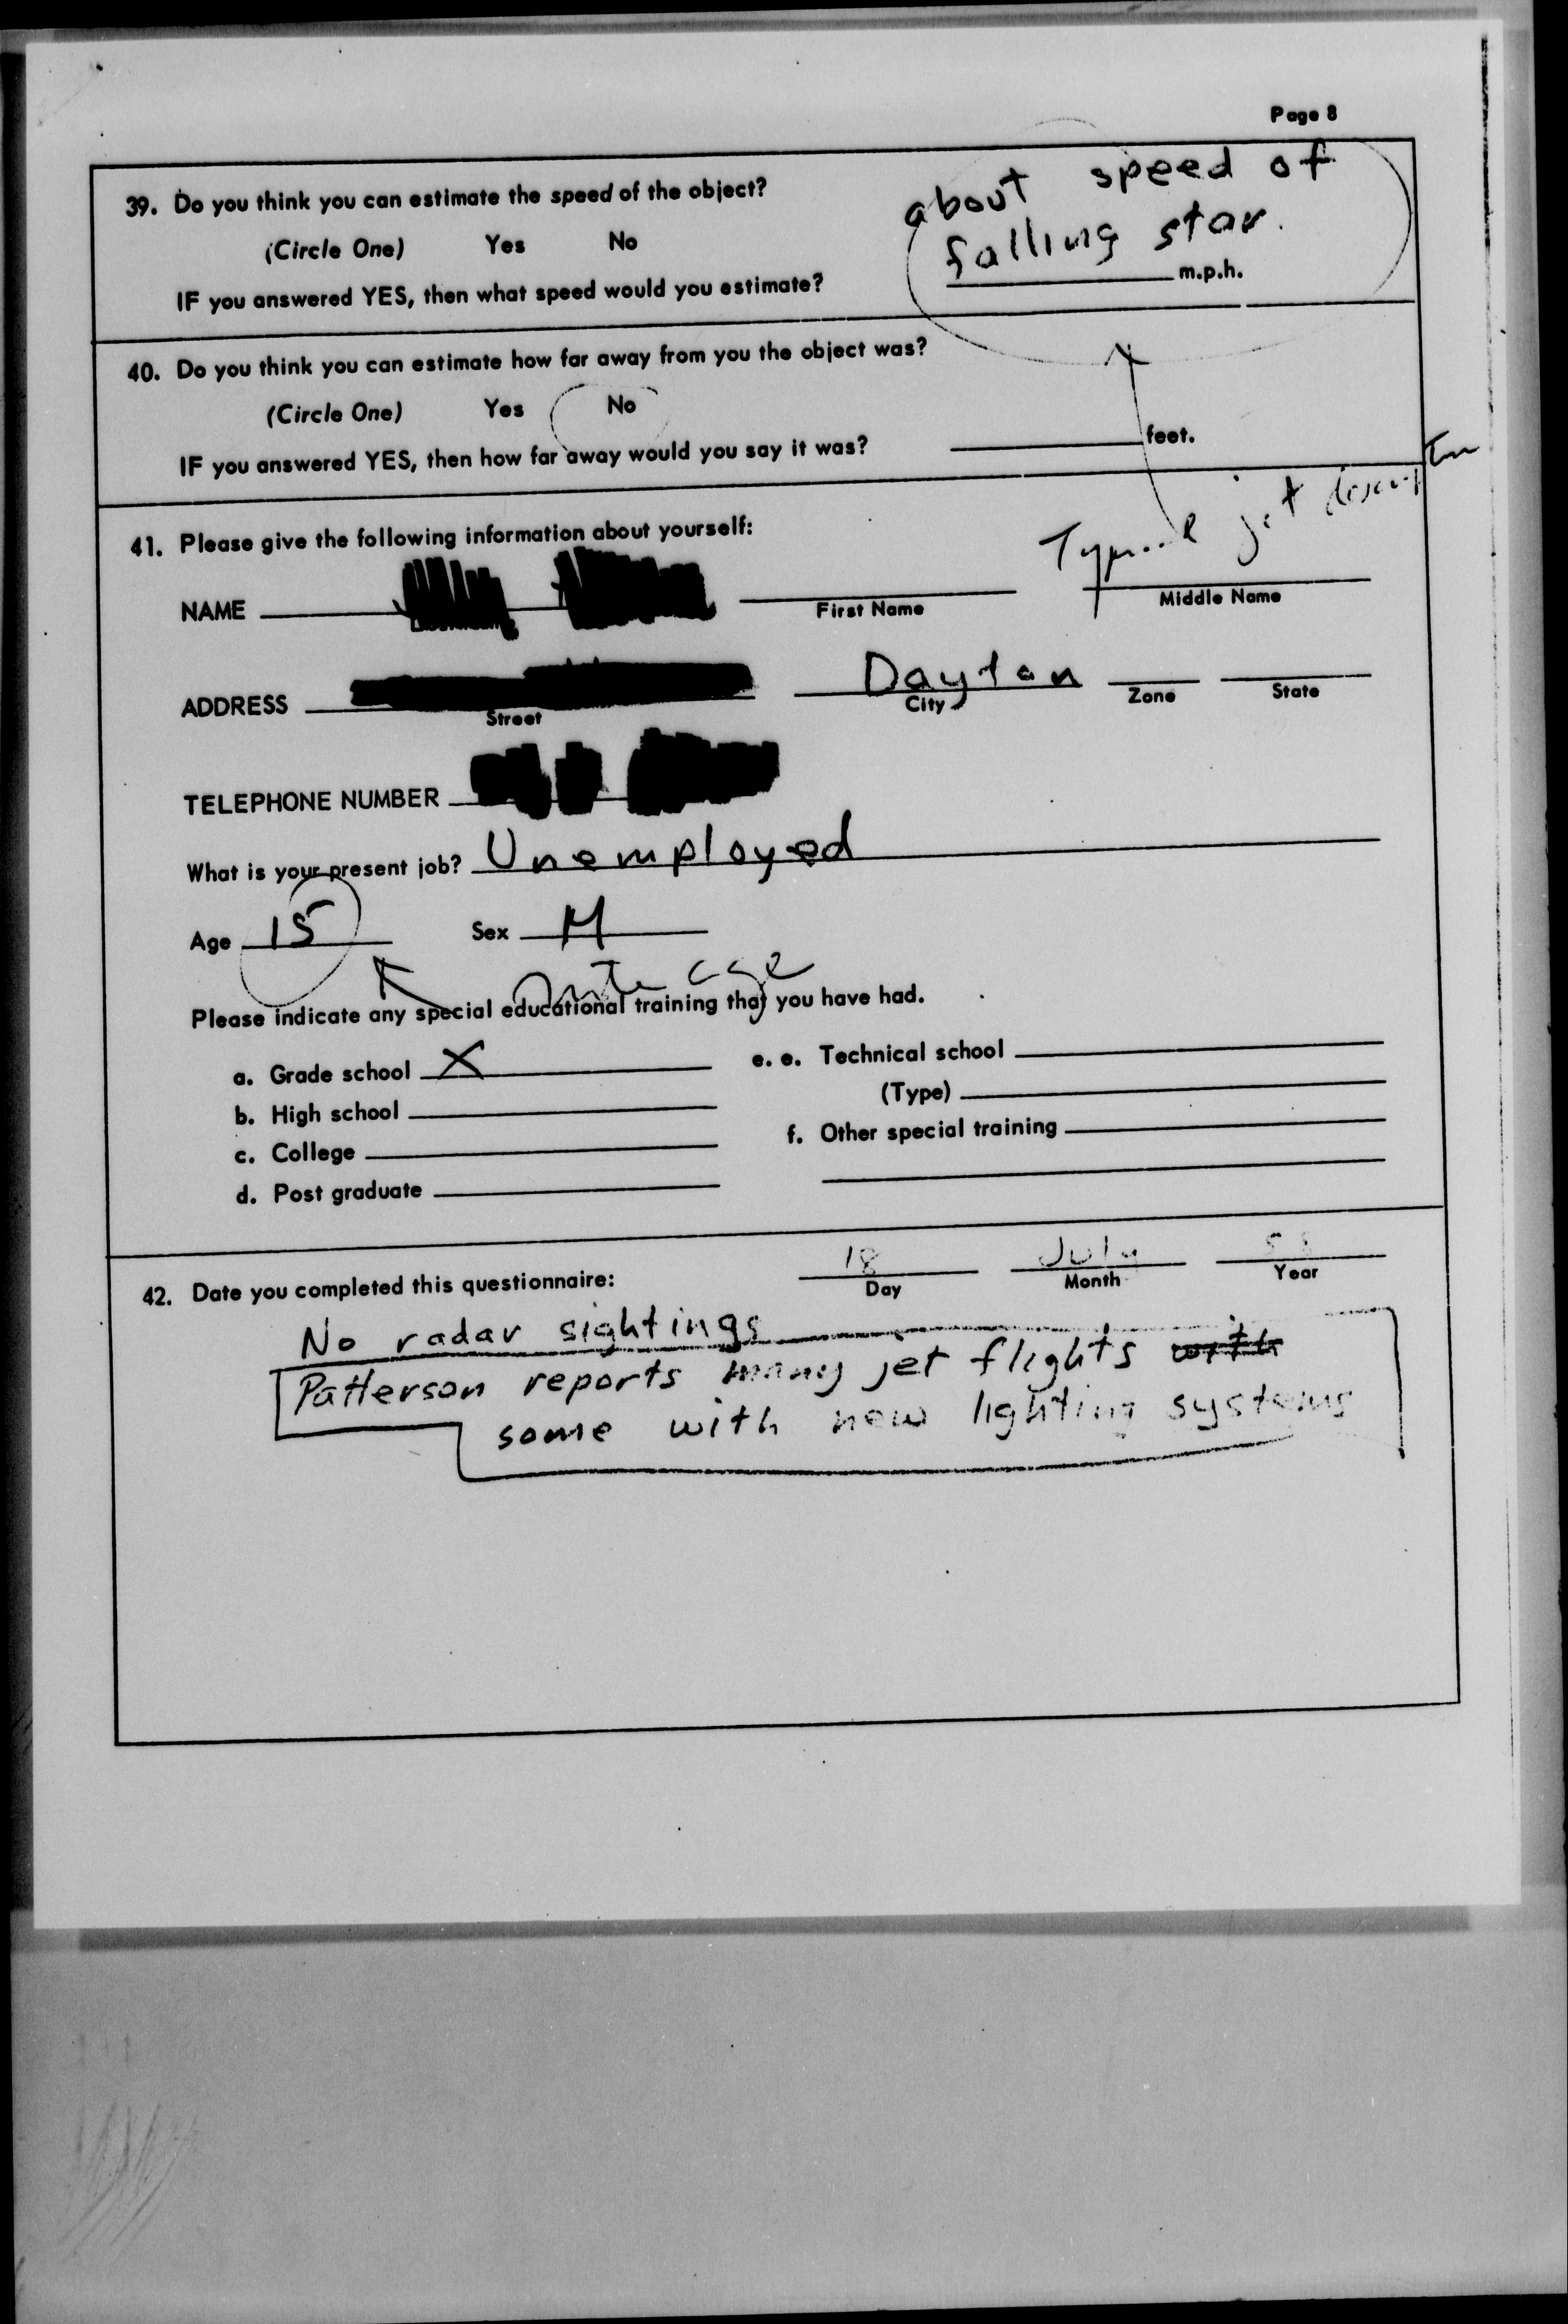 Page 8
39. Do you think you can estimate the speed of the object?
about speed of
falling star.
(Circle One) Yes No
IF you answered YES, then what speed would you estimate? m.p.h.
40. Do you think you can estimate how far away from you the object was?
(Circle One) Yes No
IF you answered YES, then how far away would you say it was? feet.
jet
41. Please give the following information about yourself:
NAME First Name Middle Name
ADDRESS Dayton
Street City Zone State
TELEPHONE NUMBER
What is your present job? Unemployed
Age 15 Sex M
Please indicate any special educational training that you have had.
a. Grade school X
b. High school
c. College
d. Post graduate
e. e. Technical school
(Type)
f. Other special training
42. Date you completed this questionnaire: 18 July 58
Day Month Year
No radar sightings
Patterson reports many jet flights with
some with new lighting systems